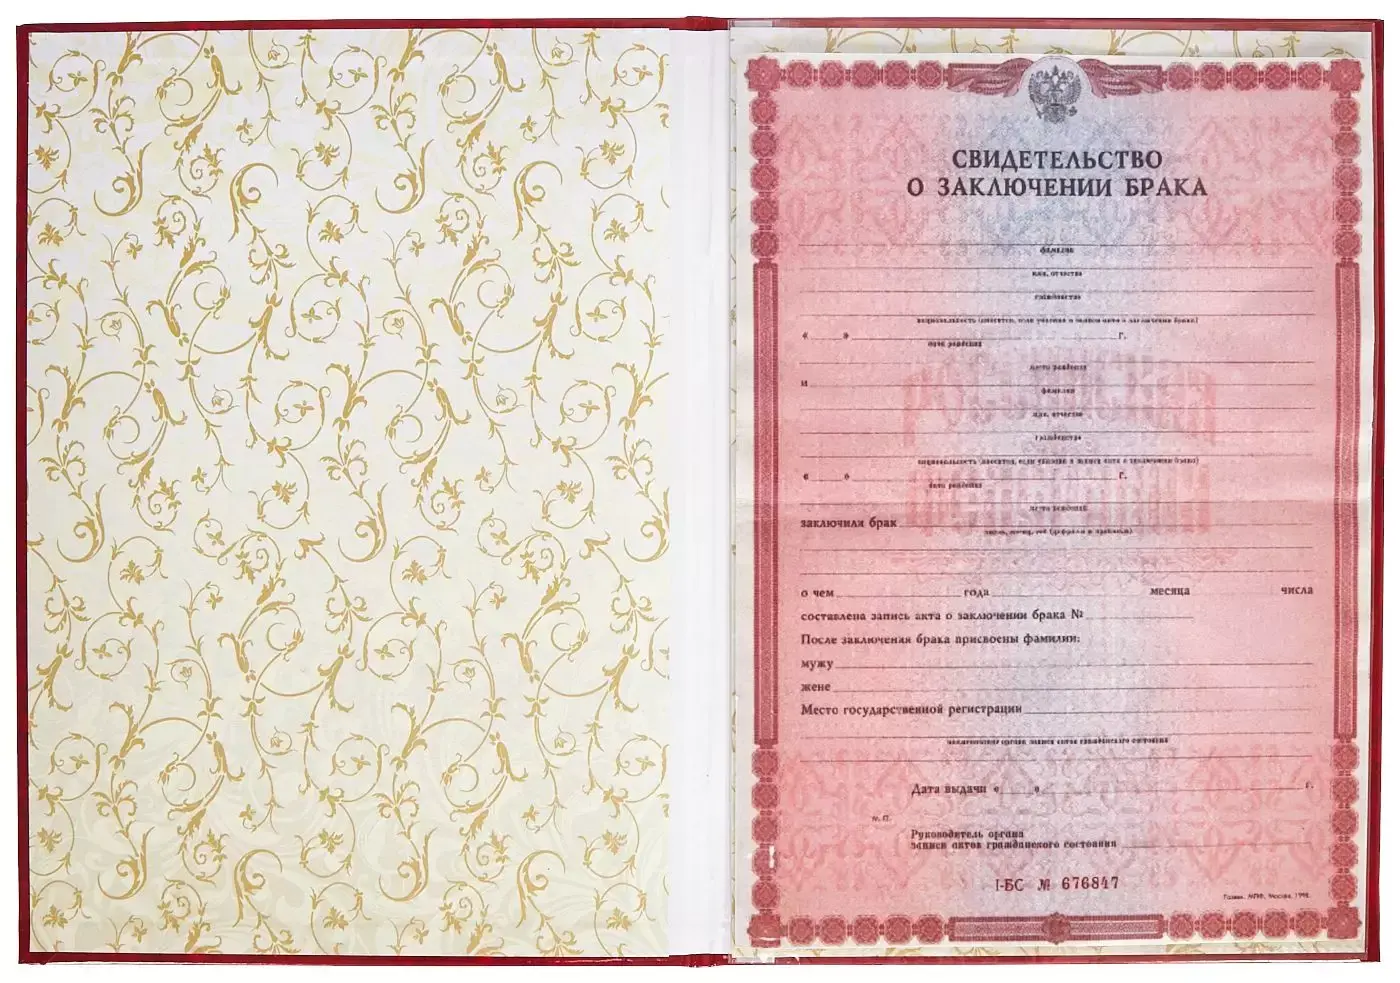 СВИДЕТЕЛЬСТВО
О ЗАКЛЮЧЕНИИ БРАКА
фамилия
имя, отчество
гражданство
национальность (вносится, если указана в записи акта о заключении брака)
« » г.
дата рождения
место рождения
и
фамилия
имя, отчество
гражданство
национальность (вносится, если указана в записи акта о заключении брака)
« » г.
дата рождения
место рождения
заключили брак
число, месяц, год (цифрами и прописью)
о чем года месяца числа
составлена запись акта о заключении брака №
После заключения брака присвоены фамилии:
мужу
жене
Место государственной регистрации
наименование органа записи актов гражданского состояния
Дата выдачи « » г.
М. П.
Руководитель органа
записи актов гражданского состояния
I-БС № 676847
Гознак. МПФ. Москва. 1998.